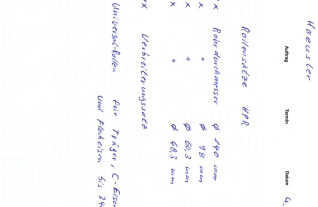 Haeusler
Auftrag Termin Datum 4.
Rollensätze HPR
x Rohrdurchmesser ø 140 mm
x " ø 98 mm
x " ø 60,3 mm
x " ø 48,3 mm
x Verbreiterungssatz
Universalrollen für Träger, C-Eisen
und Flacheisen bis